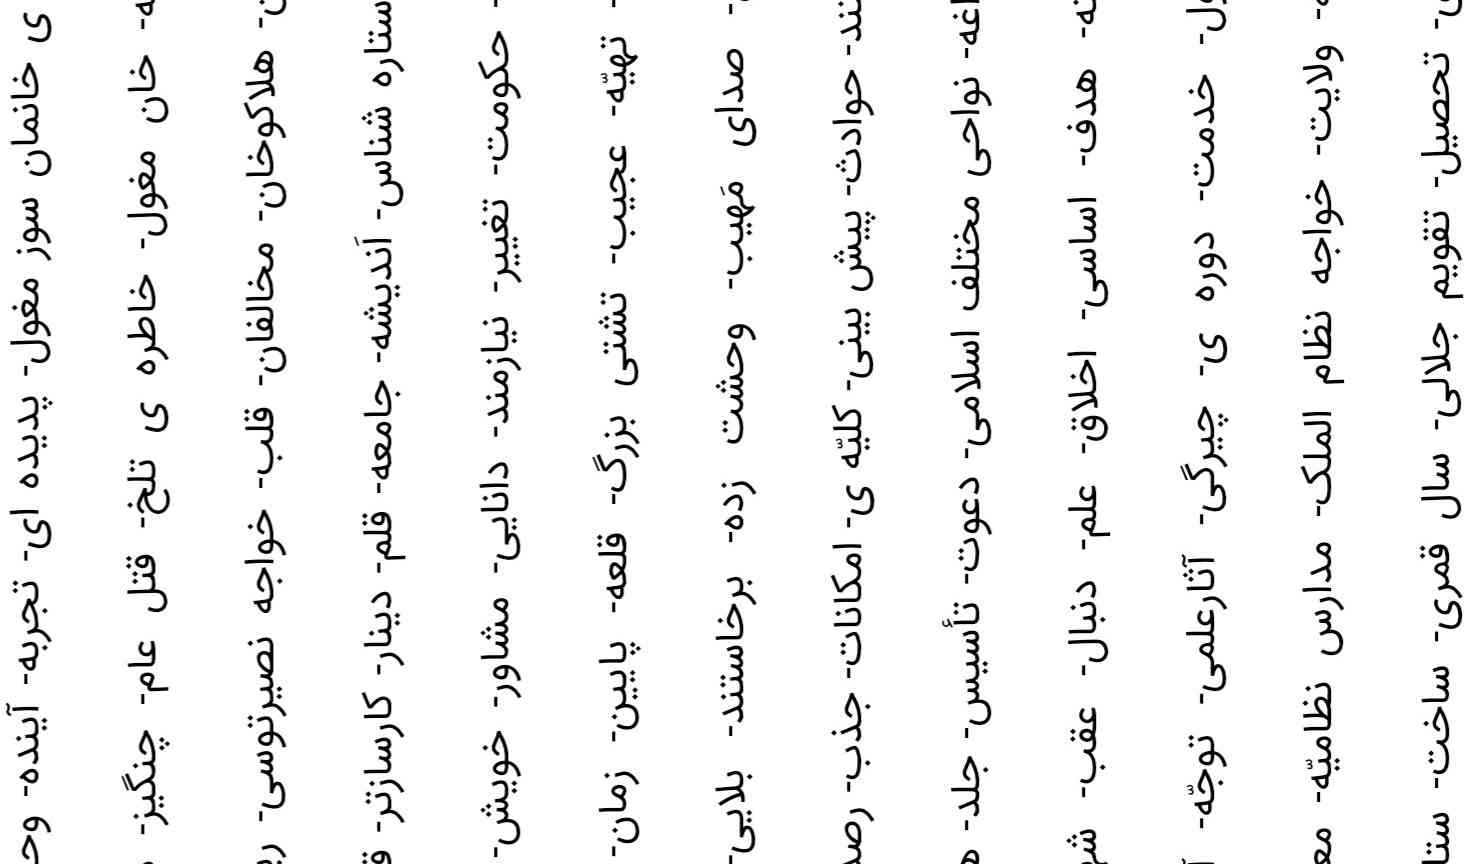 ی خانمان سوز مغول- پدیده ای- تجربه- آینده- وحـ
ـه- خان مغول- خاطره ی تلخ- قتل عام- چنگیز-
ن- هلاکوخان- مخالفان- قلب- خواجه نصیرتوسی-
ستاره شناس- اَندیشه- جامعه- قلم- دینار- کارسازتر-
- حکومت- تغییر- نیازمند- دانایی- مشاور- خویش-
- تهیّه- عجیب- تشتی بزرگ- قلعه- پایین- زمان-
- صدای مَهیب- وحشت زده- برخاستند- بلایی-
ـند- حوادث- پیش بینی- کلیّه ی- امکانات- جذب- رصد
اغه- نواحی مختلف اسلامی- دعوت- تأسیس- جلد-
ـه- هدف- اساسی- اخلاق- علم- دنبال- عقب-
ول- خدمت- دوره ی- چیرگی- آثارعلمی- توجّه-
ه- ولایت- خواجه نظام الملک- مدارس نظامیّه-
ی- تحصیل- تقویم جلالی- سال قمری- ساخت- ستا